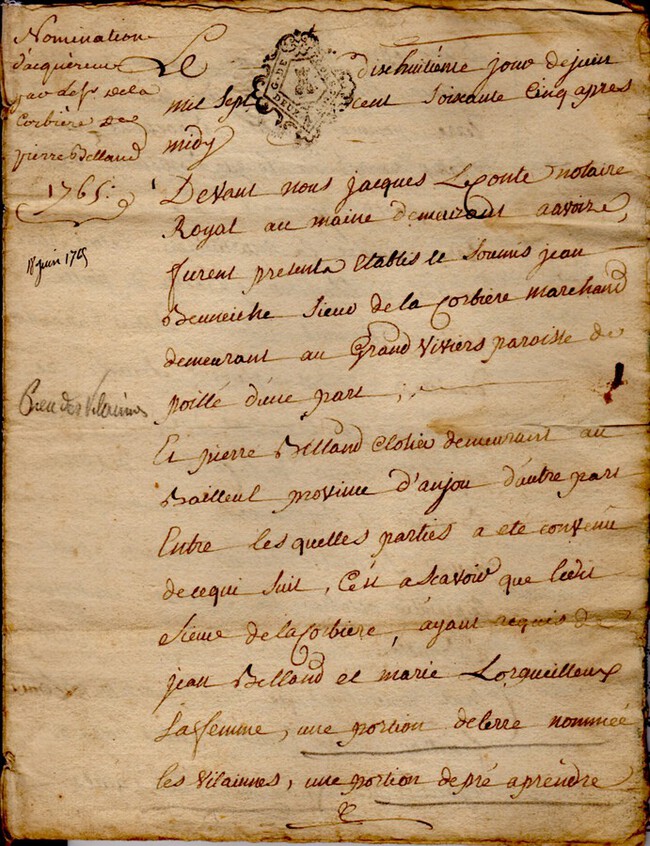 Nomination
d'acquéreur
par le sr de la
Corbiere de
pierre Belland
1765:
18 juin 1765
Le dixhuitiéme jour de juin
mil Sept cent Soixante Cinq apres
midy
Devant nous jacques Leconte notaire
Royal au maine demeurant a avoire,
furent presents Etablis et Soumis jean
Sieur de la Corbiere marchand
demeurant au Grand Viviers paroisse de
poillé d'une part,
Et pierre Belland Closier demeurant au
Bailleul province d'anjou d'autre part
Entre les quelles parties a eté convenu
de ce qui Suit, C'est a Scavoir que ledit
Sieur de la Corbiere, ayant acquis de
jean Belland et marie Lorgueilleux
Sa femme, une portion de terre nommée
les Vilainnes, une portion de pré aprendre